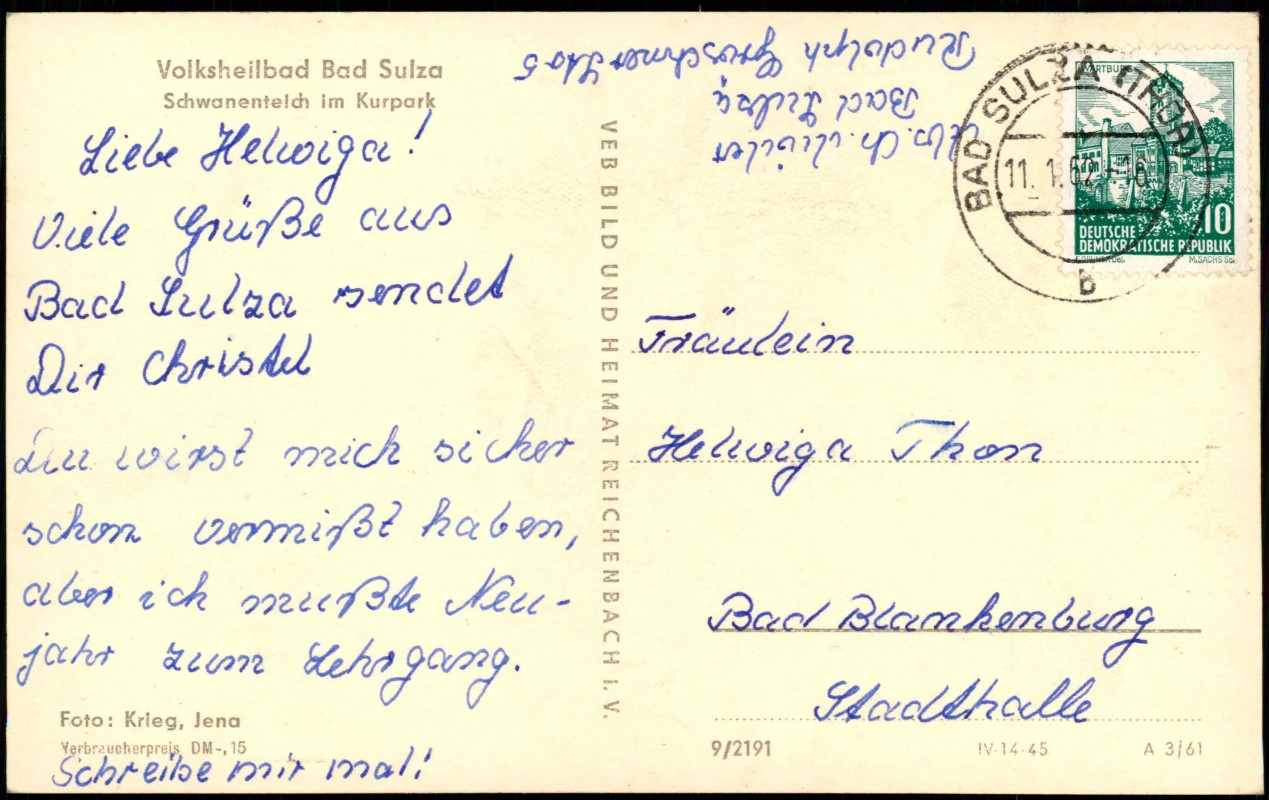 Volksheilbad Bad Sulza
Schwanenteich im Kurpark
Liebe Helwiga!
Viele Grüße aus
Bad Sulza sendet
Dir Christel
Du wirst mich sicher
schon vermißt haben,
aber ich mußte Neu-
jahr zum Lehrgang.
Foto: Krieg, Jena
Verbraucherpreis DM -,15
Schreibe mir mal!
VEB BILD UND HEIMAT REICHENBACH I. V.
Abs. Ch.
Bad Sulza
Rudolph 5
BAD SULZA (THÜR)
11. 1. 62 - 16
b
WARTBURG
10
DEUTSCHE
DEMOKRATISCHE REPUBLIK
M. SACHS Sc.
Fräulein
Helwiga Thon
Bad Blankenburg
Stadthalle
9/2191
IV-14-45
A 3/61